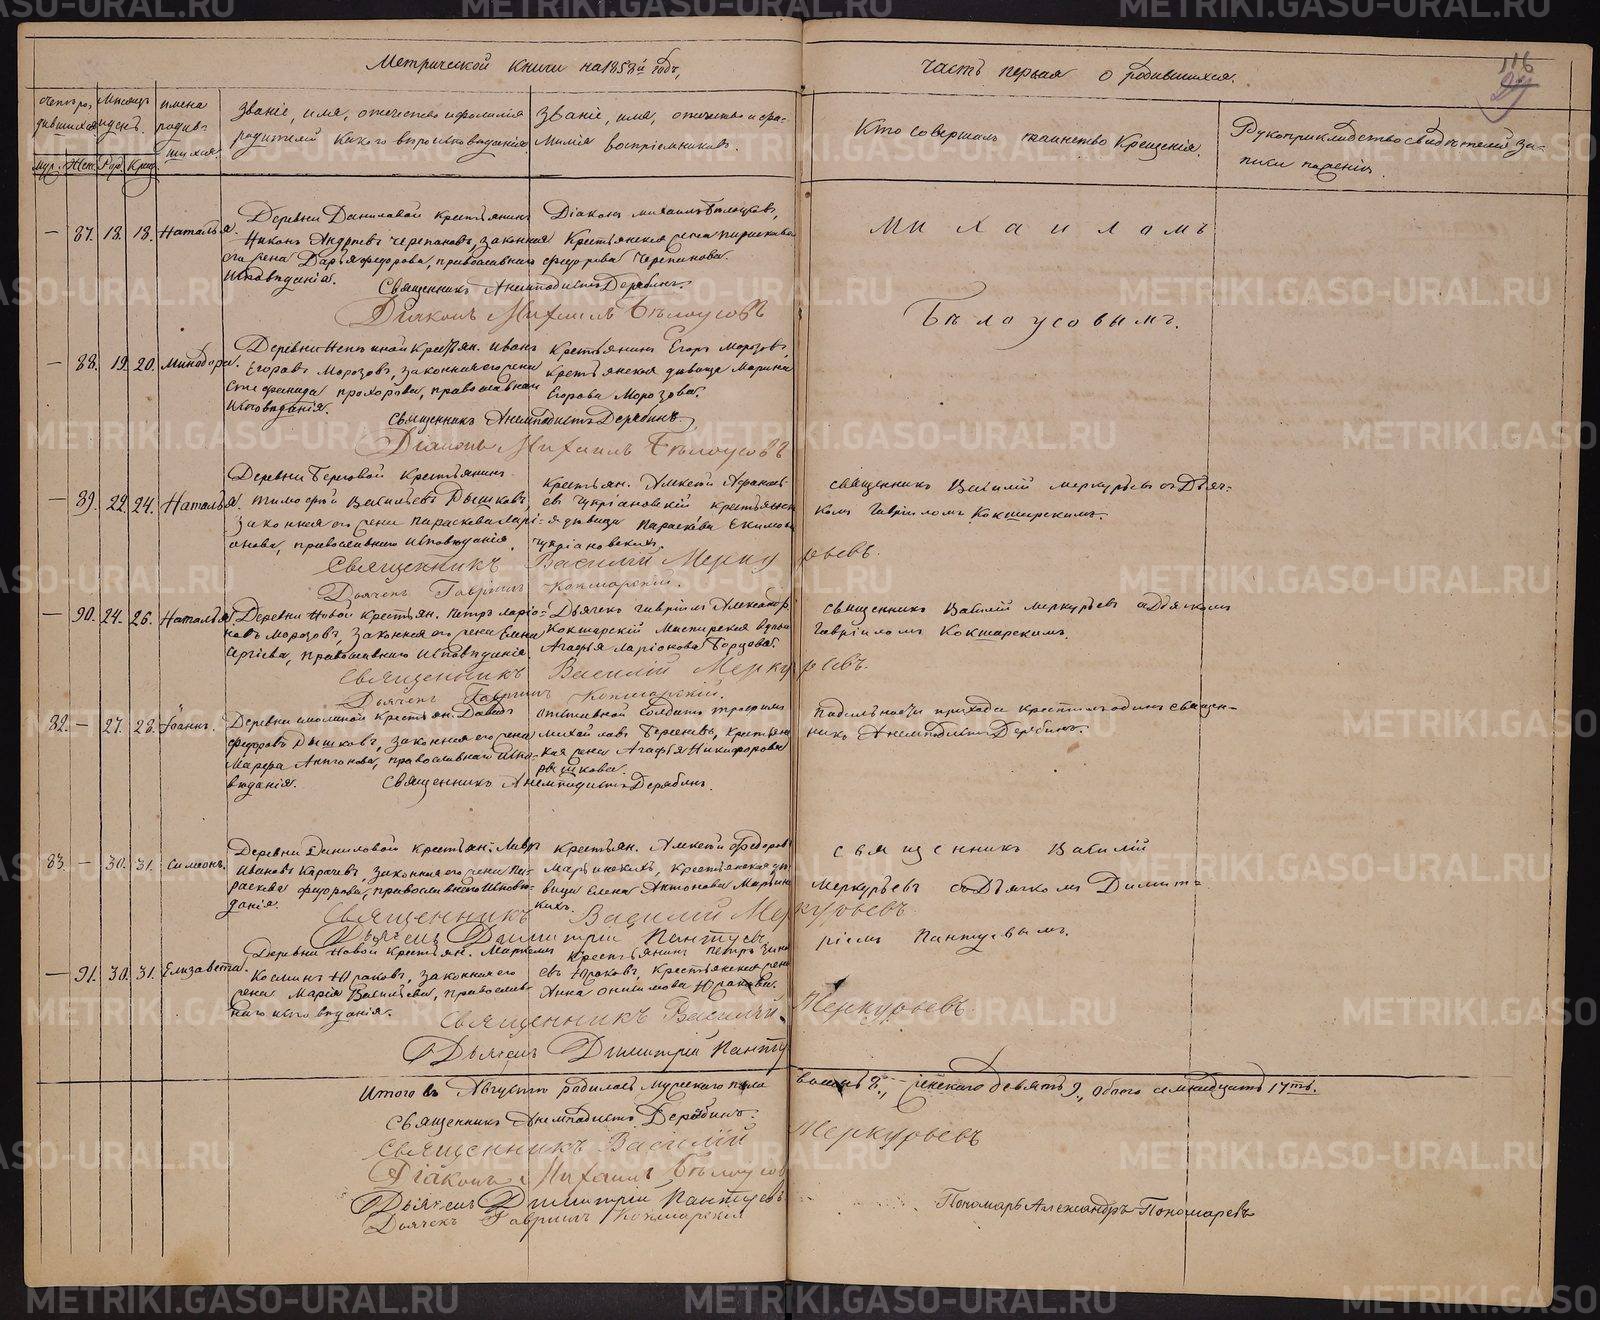 Метрической книги на 1858й годъ,
часть первая о родившихся.
116
Счетъ ро-
дившихся
Мѣсяцъ
и день.
имена
родив-
шихся
Званіе, имя, отчество и фамилія
родителей и какого вѣроисповѣданія
Званіе, имя, отчество и фа-
милія воспріемниковъ.
Кто совершалъ таинство Крещенія.
Рукоприкладство свидѣтелей за-
писи
муж. Жен. Рож. Крещ.
— 87. 18. 18. Наталья.
Деревни Даниловой крестьянинъ
Никонъ Андреевъ Черепановъ, законная
его жена Дарья Федорова, православнаго
исповѣданія.
Діаконъ Михаилъ Бѣлоусовъ,
Крестьянская жена Параскева
Федорова Черепанова.
Михаиломъ
Бѣлоусовымъ.
Священникъ Анемподистъ Дерябинъ.
Діаконъ Михаилъ Бѣлоусовъ
— 88. 19. 20. Минодора.
Крестьян. Иванъ
Егоровъ Морозовъ, законная его жена
Стефанида Прохорова, православнаго
исповѣданія.
Крестьянинъ Егоръ Морозовъ,
крестьянская дѣвица Марина
Егорова Морозова.
Священникъ Анемподистъ Дерябинъ.
Діаконъ Михаилъ Бѣлоусовъ
— 89. 22. 24. Наталья.
Деревни Береговой Крестьянинъ
Тимофей Васильевъ Пышковъ,
законная его жена Параскева Ларі-
онова, православнаго исповѣданія.
Крестьян. Алексѣй Афанась-
евъ Чупріановскій крестьянск-
я дѣвица Параскева Екимова
Чупріановскихъ.
священникъ Василій Меркурьевъ съ Дьяч-
комъ Гавріиломъ Кокшарскимъ.
Священникъ Василій Меркурьевъ.
Дьячекъ Гавріилъ Кокшарскій.
— 90. 24. 26. Наталья
Деревни Новой Крестьян. Петръ Ларіо-
новъ Морозовъ, законная его жена Елена
Сергіева, православнаго исповѣданія.
Дьячекъ Гавріилъ Александр.
Кокшарскій Мастерская вдова
Агафья Ларіонова Борцова.
священникъ Василій Меркурьевъ съ Дьячкомъ
Гавріиломъ Кокшарскимъ.
Священникъ Василій Меркурьевъ.
Дьячекъ Гавріилъ Кокшарскій.
82. — 27. 28. Іоаннъ.
Крестьян. Давидъ
Федоровъ Пышковъ, законная его жена
Марфа Антонова, православнаго испо-
вѣданія.
отставной солдатъ Трофимъ
Михайловъ Берсеневъ, Крестьянс-
кая жена Агафья Никифорова
Пышкова.
крестилъ одинъ священ-
никъ Анемподистъ Дерябинъ.
Священникъ Анемподистъ Дерябинъ.
83. — 30. 31. Симеонъ.
Деревни Даниловой Крестьян. Лавръ
Ивановъ Карачевъ, законная его жена Па-
раскева Федорова, православнаго исповѣ-
данія.
Крестьян. Алексѣй Федоровъ
Марьинскихъ, Крестьянская дѣ-
вица Елена Антонова Марьинс-
кихъ.
священникъ Василій
Меркурьевъ съ Дьячкомъ Димит-
ріемъ Пантуевымъ.
Священникъ Василій Меркурьевъ.
Дьячекъ Димитрій Пантуевъ
— 91. 30. 31. Елизавета.
Деревни Новой Крестьян. Маркелъ
Косминъ Юраковъ, законная его
жена Марія Васильева, православ-
наго исповѣданія.
Крестьянинъ Петръ Зино-
евъ Юраковъ, Крестьянская жена
Анна Онисимова Юракова.
Священникъ Василій Меркурьевъ.
Дьячекъ Димитрій Пантуевъ
Итого въ Августѣ родилось мужского пола восемь 8., женскаго девять 9., обоего семнадцать 17ть.
Священникъ Анемподистъ Дерябинъ.
Священникъ Василій Меркурьевъ
Діаконъ Михаилъ Бѣлоусовъ
Дьячекъ Димитрій Пантуевъ
Дьячекъ Гавріилъ Кокшарскій
Пономарь Александръ Пономаревъ
METRIKI.GASO-URAL.RU